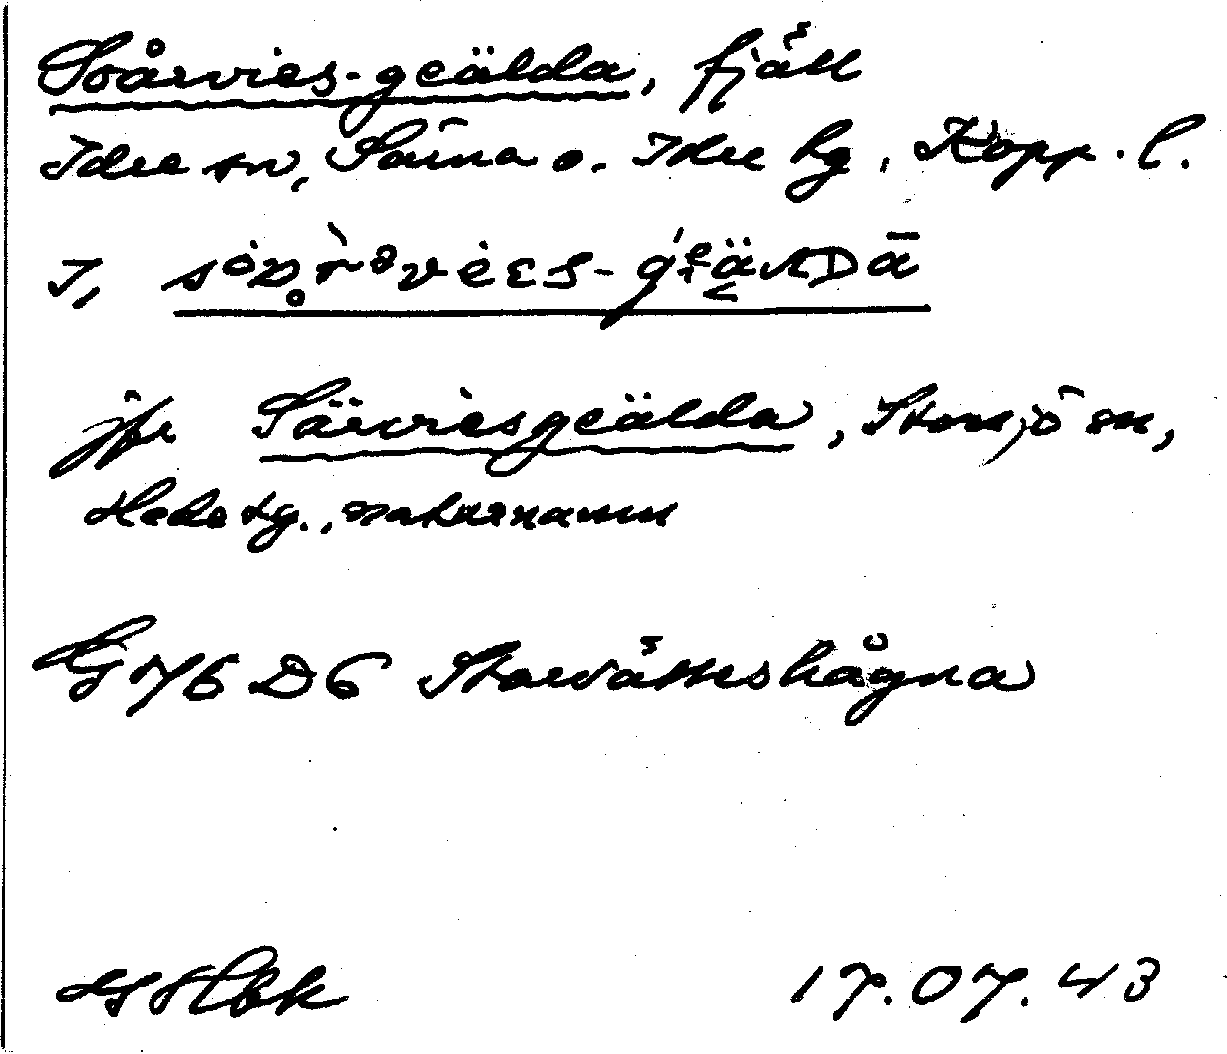 Soårvies-geälda, fjäll
Idre sn, Särna o. Idre tg, Kopp. l.
jfr Särviesgeälda, Storsjö sn,
Hede tg., naturnamn
G 76 D6 Storvätteshågna
17.07.43